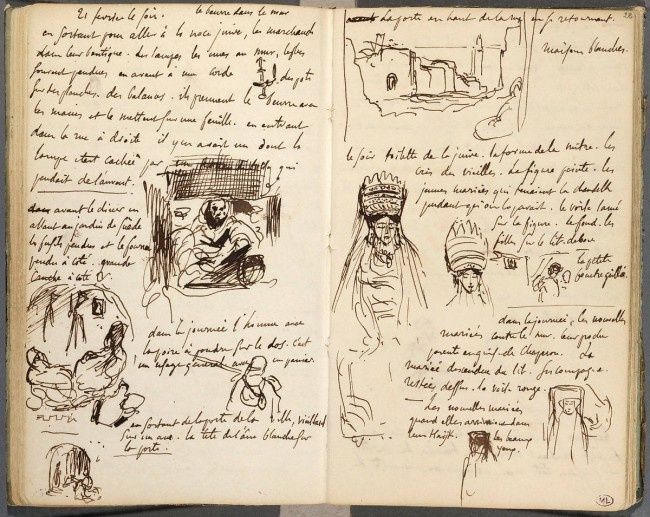 21 fevrier le soir. le beurre dans le mur
en sortant pour aller à la noce juive, les marchands
dans leur boutique. des lampes les unes au mur, le plus
souvent pendues en avant à une corde
des pots
sur des planches. des balances. ils prennent le beurre avec
les mains et le mettent sur une feuille. en entrant
dans la rue à droite il y en avait un dont la
lampe etait cachée par un morceau de toile qui
pendait de l'auvent.
avant le diner en
allant au jardin de Suede
les fusils pendus et le fourreau
pendu à côté. grande
à côté
dans la journée l'homme avec
la poire à poudre sur le dos. C'est
un usage général avec un panier.
en sortant de la porte de la ville, vieillard
sur un ane. la tête de l'âne blanche sur
la porte.
La porte en haut de la rue en se retournant.
maisons blanches.
le soir toilette de la juive. la forme de la mitre. les
cris des vieilles. La figure peinte. les
jeunes mariées qui tenaient la chandelle
pendant qu'on la parait. le voile lancé
sur la figure. le fond. les
filles sur le lit debout
la petite
dans la journée, les nouvelles
mariées contre le mur. leur proche
parente en guise de chaperon. La
mariée descendue du lit. Ses compagnes
restées dessus. le voile rouge.
Les nouvelles mariées
quand elles arrivaient dans
leur haïjk. les beaux
yeux.
ML